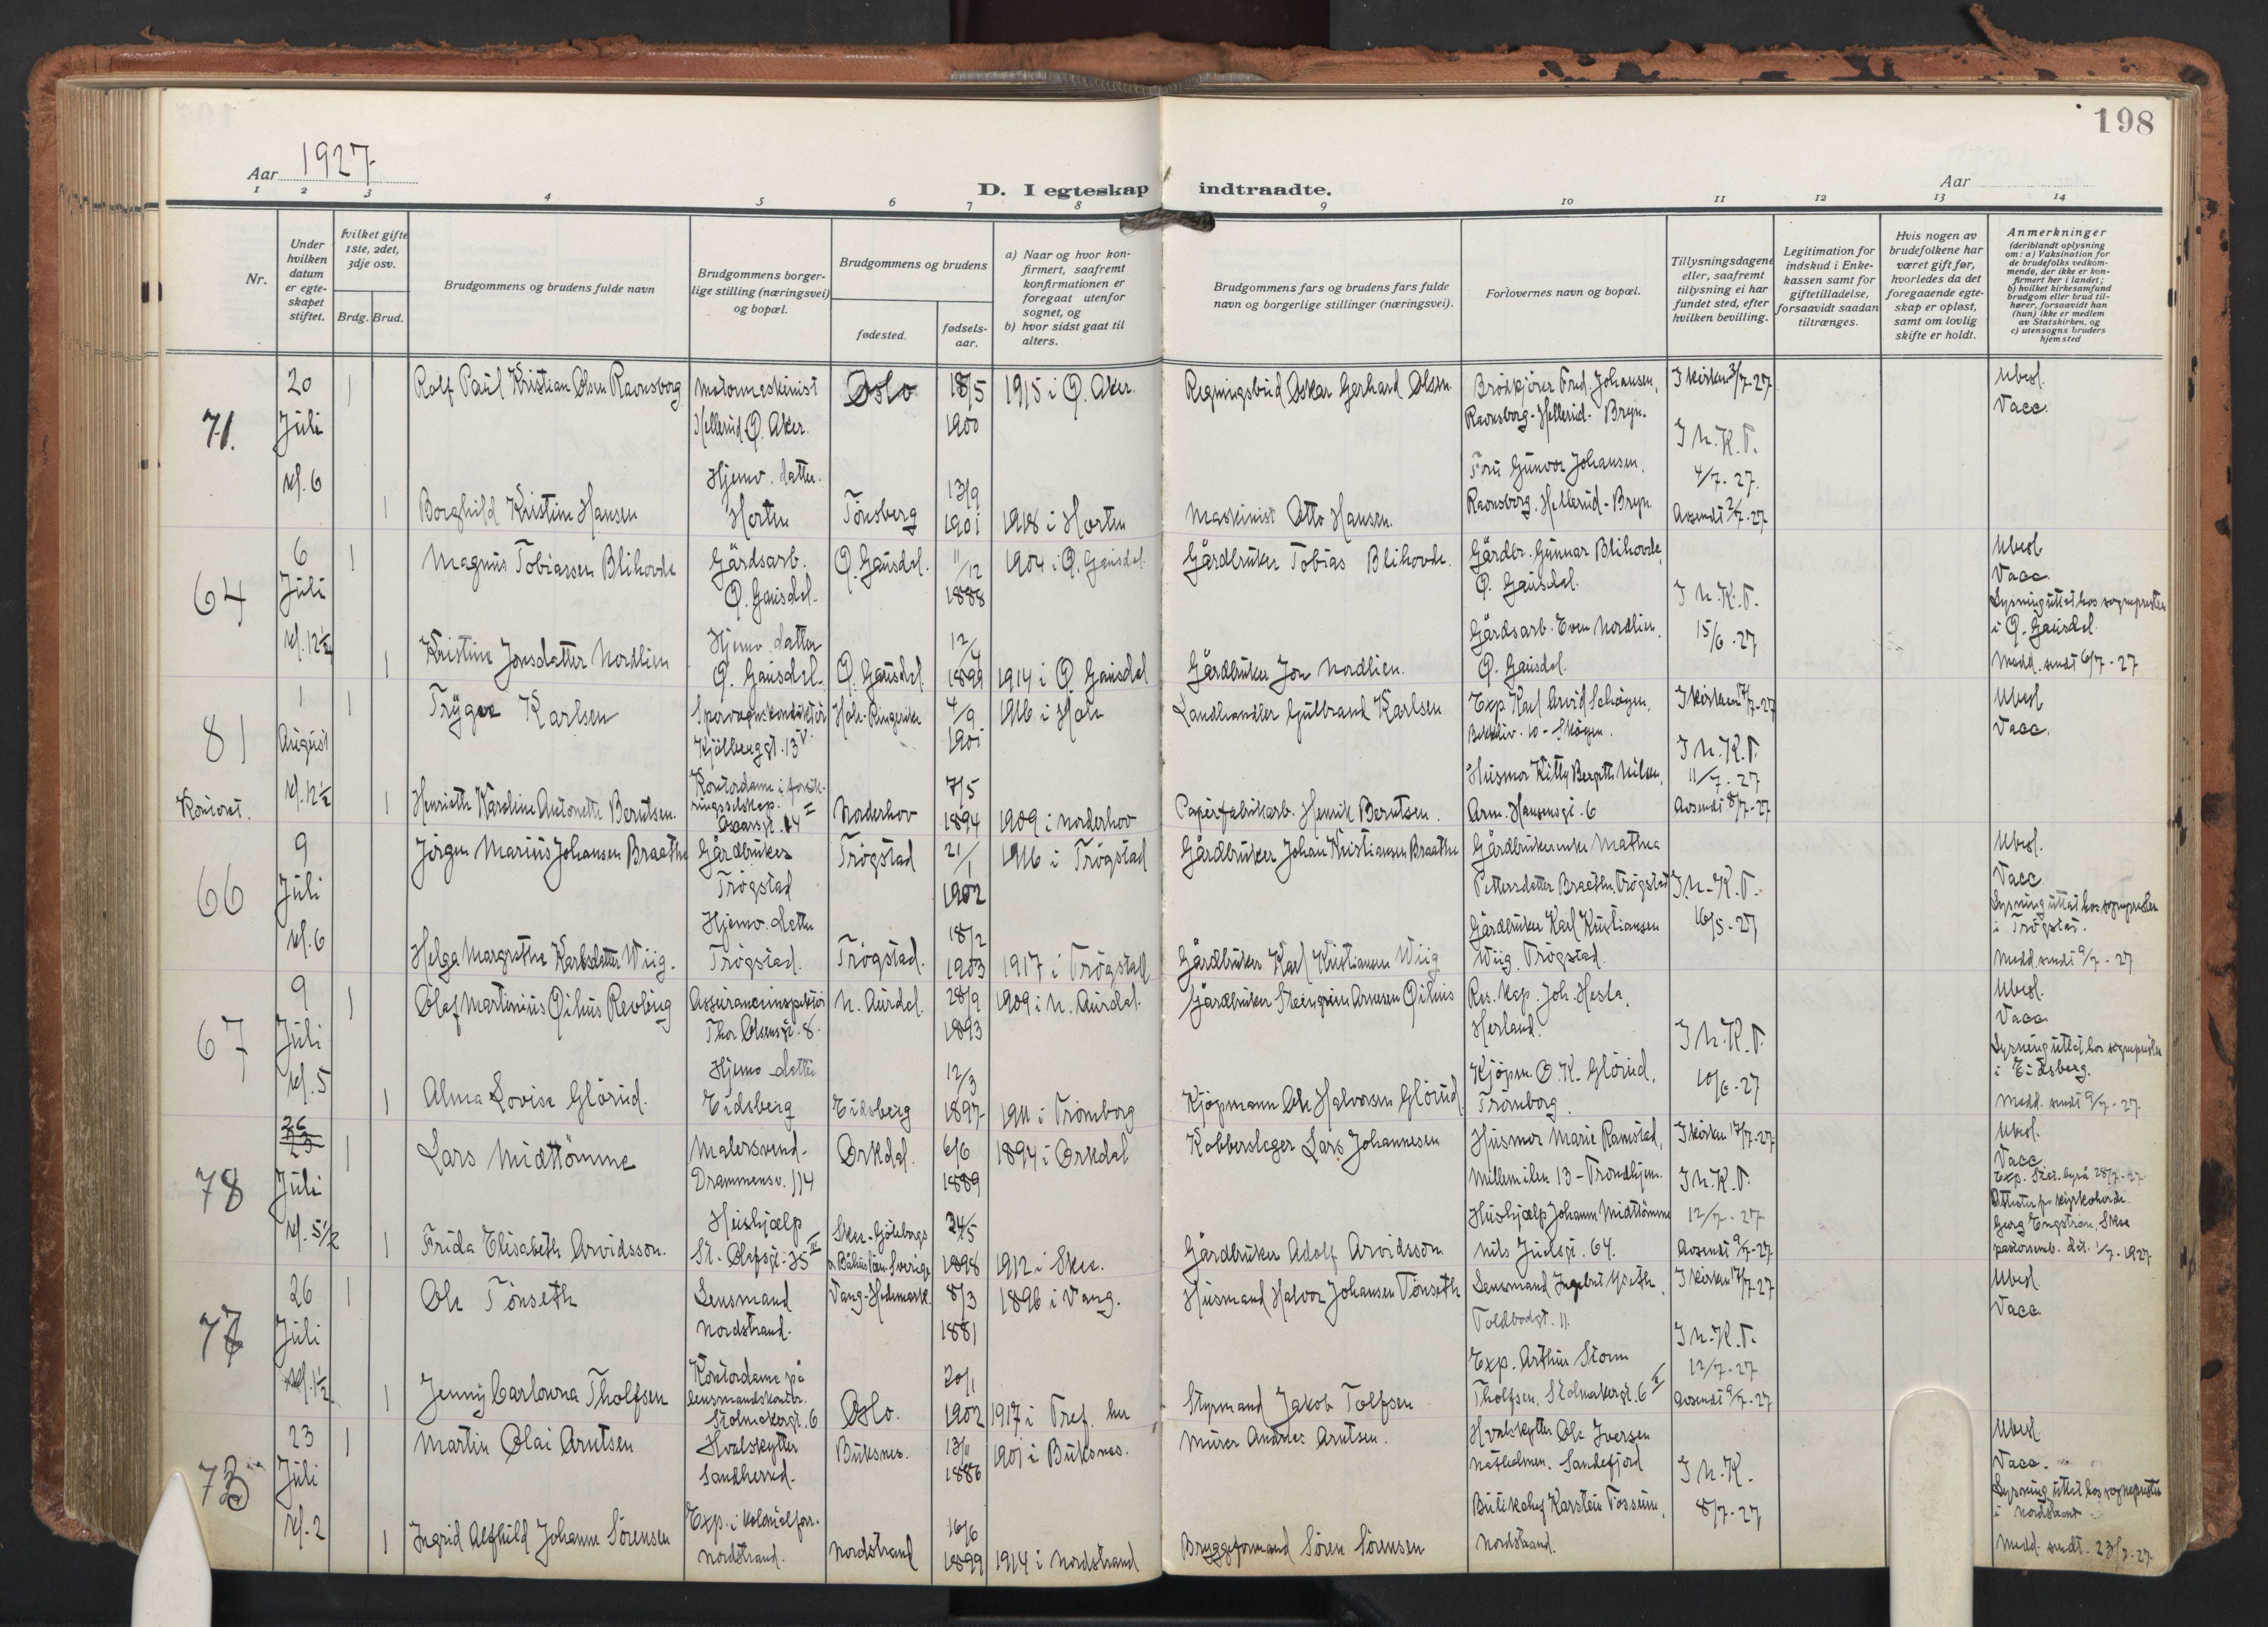 198
Aar 1927
D. I egteskap indtraadte.
Aar
1 2 3 4 5 6 7 8 9 10 11 12 13 14
Nr.
Under hvilken datum er egteskapet stiftet.
hvilket gifte 1ste, 2det, 3dje osv.
Brdg. Brud.
Brudgommens og brudens fulde navn
Brudgommens borgerlige stilling (næringsvei) og bopæl.
Brudgommens og brudens
fødested.
fødselsaar.
a) Naar og hvor konfirmert, saafremt konfirmationen er foregaat utenfor sognet, og
b) hvor sidst gaat til alters.
Brudgommens fars og brudens fars fulde navn og borgerlige stillinger (næringsvei).
Forlovernes navn og bopæl.
Tillysningsdagene eller, saafremt tillysning ei har fundet sted, efter hvilken bevilling.
Legitimation for indskud i Enkekassen samt for giftetilladelse, forsaavidt saadan tiltrænges.
Hvis nogen av brudefolkene har været gift før, hvorledes da det foregaaende egteskap er opløst, samt om lovlig skifte er holdt.
Anmerkninger
(deriblandt oplysning om: a) Vaksination for de brudefolks vedkommende, der ikke er konfirmert her i landet; b) hvilket kirkesamfund brudgom eller brud tilhører, forsaavidt han (hun) ikke er medlem av Statskirken, og c) utensogns bruders hjemsted
71. 20 Juli kl. 6
1 Rolf Paul Kristian Olsen Ravnsborg
Hellerud Ø. Aker.
Oslo
18/5 1900
1915 i Ø. Aker.
Regningsbud Oskar Gerhard Olsen.
Brödkjörer Fred. Johansen,
Ravnsborg-Hellerud-Bryn.
I kirken 3/7-27
I N.K.T.
4/7-27.
Avsendt 2/7-27
Ubesl.
Vacc.
1 Borghild Kristine Hansen
Hjemv. datter.
Horten
Tönsberg
13/9 1901
1918 i Horten
Maskinist Otto Hansen.
Fru Gunvor Johansen.
Ravnsborg, Hellerud-Bryn.
64 6 Juli kl. 12½
1 Magnus Tobiassen Blihovde
Gårdsarb.
Ø. Gausdal.
Ø. Gausdal.
11/12 1888
1904 i Ø. Gausdal.
Gårdbruker Tobias Blihovde.
Gårdbr. Gunnar Blihovde,
Ø. Gausdal.
I N.K.T.
15/6-27
Ubesl.
Vacc.
Lysning uttat hos sognepresten
i Ø. Gausdal.
Medd. sendt 6/7-27
1 Kristine Jonsdatter Nordlien
Hjemv. datter
Ø. Gausdal.
Ø. Gausdal
1899
1914 i Ø. Gausdal
Gårdbruker Jon Nordlien.
Gårdsarb. Even Nordlien.
Ø. Gausdal.
81 1 August kl. 12½
Kontoret.
1 Trygve Karlsen
Sporvognskonduktör
Kjölberggt. 13 V
Hole-Ringerike
4/9 1901
1916 i Hole
Landhandler Gulbrand Karlsen
Exp. Karl Arvid Schöyen,
I kirken 17/7-27
I N.K.T.
11/7-27
Avsendt 8/7-27
Ubesl
Vacc.
1 Henriette Karoline Antonette Berntsen.
Kontordame i forsikringsselskap.
Oscarsgt. 14 II
Norderhov
7/5 1894
1909 i Norderhov
Papirfabrikarb. Henrik Berntsen.
Husmor Kitty Bergitte Nilsen,
Arn. Hansensgt. 6
66 9 Juli kl. 6
Jörgen Marius Johansen Braathe
Gårdbruker
Trögstad
Trögstad
21/1 1902
1916 i Trögstad
Gårdbruker Johan Kristiansen Braathe
Gårdbrukerenke Mathea
Pettersdatter Braathe, Trögstad
I N.K.T.
16/5-27
Ubesl.
Vacc
Lysning uttat hos sognepresten
i Trögstad.
Medd. sendt 9/7-27
Helga Margrethe Karlsdatter Wiig.
Hjemv. datter
Trögstad.
Trögstad.
18/2 1903
1917 i Trögstad
Gårdbruker Karl Kristiansen Wiig
Gårdbruker Karl Kristiansen
Wiig. Trögstad.
67 9 Juli kl. 5
1 Olaf Martinius Revling
Assuranceinspektör
Thor Olsensgt. 8.
N. Aurdal.
28/9 1893
1909 i N. Aurdal.
Gårdbruker Steingrim Arnesen
Res. kap. Joh. Hesla,
Herland.
I N.K.T.
10/6-27
Ubesl.
Vacc
Lysning uttat hos sognepresten
i Eidsberg.
Medd. sendt 9/7-27.
1 Alma Lovise Glörud.
Hjemv. datter
Eidsberg
Eidsberg
12/3 1897
1911 i Trömborg
Kjöpmann Ole Halvorsen Glörud.
Kjöpm. O. K. Glörud,
Trömborg.
78 26 Juli kl. 5½
1 Lars Midttömme
Malersvend.
Drammensv. 114
Orkdal.
6/6 1889
1894 i Orkdal
Kobberslager Lars Johannesen
Husmor Marie Ramstad,
Mellemilen 13-Trondhjem.
I kirken 17/7-27
I N.K.T.
12/7-27
Avsendt 9/7-27
Ubesl.
Vacc
Georg Engström, Skee
pastorsemb. dat. 1/7-1927
1 Frida Elisabeth Arvidsson.
Hushjælp
St. Olafsgt. 35 III
Skee-Göteborgs
24/5 1898
1912 i Skee.
Gårdbruker Adolf Arvidsson.
Hushjælp Johanne Midttömme
Nils Juelsgt. 64.
77 26 Juli kl. 1½
1 Ole Tönseth
Lensmand
Nordstrand.
Vang-Hedemark.
8/3 1881
1896 i Vang.
Husmand Halvor Johansen Tönseth
Toldbodgt. 11.
I kirken 17/7-27
I N.K.T.
12/7-27
Avsendt 9/7-27
Ubesl
Vacc.
1 Jenny Carlowna Tholfsen
Kontordame på
lensmandskontor.
Stolmakergt. 6
Oslo.
20/1 1902
1917 i Tref. her
Styrmand Jakob Tolfsen
Exp. Arthur Storm
Tholfsen, Stolmakergt. 6
73 23 Juli kl. 2
1 Martin Olai Arntsen
Hvalskytter
Sandherred.
Buksnes.
13/11 1886
1901 i Buksnes.
Murer Andreas Arntsen.
Hvalskytter Ole Iversen
Sandefjord
I N.K.
8/7-27
Ubesl
Vacc.
Lysning uttat hos sognepresten
i Nordstrand
Medd. sendt. 23/7-27.
1 Ingrid Alfhild Johanne Sörensen
Exp. i kolonialforr.
Nordstrand.
Nordstrand
16/6 1899
1914 i Nordstrand
Bryggeformand Sören Sörensen
Karstein Fossum,
Nordstrand.